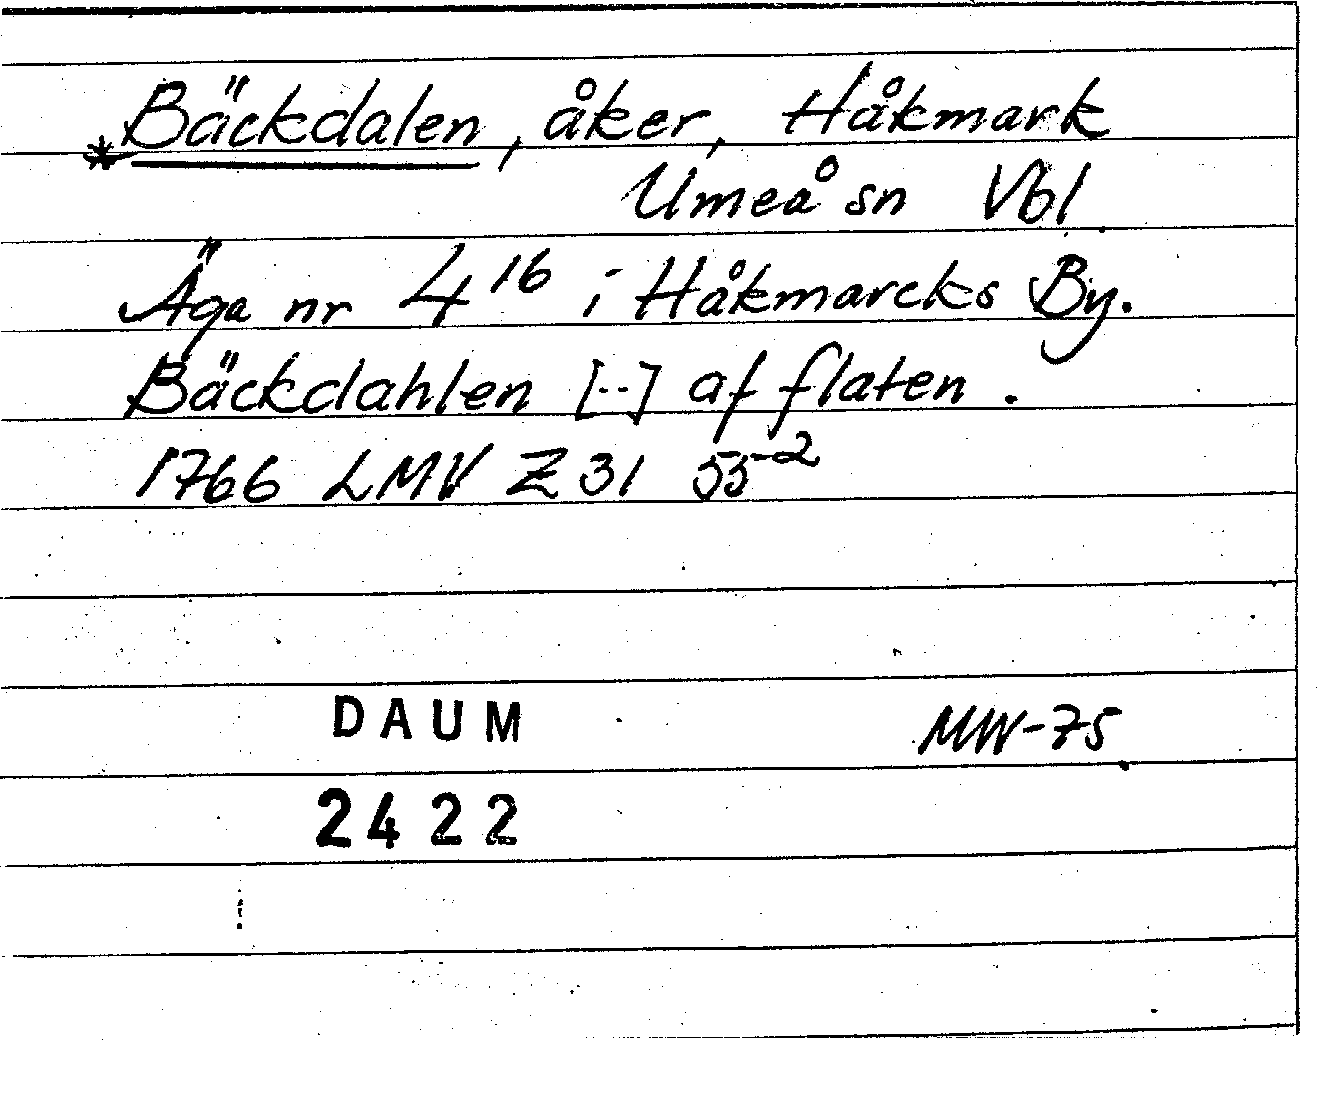 *Bäckdalen, åker, Håkmark
Umeå sn Vbl
Äga nr 4¹⁶ i Håkmarcks By.
Bäckdahlen [--] af flaten.
1766 LMV Z 31 53⁻²
DAUM
MW-75
2422